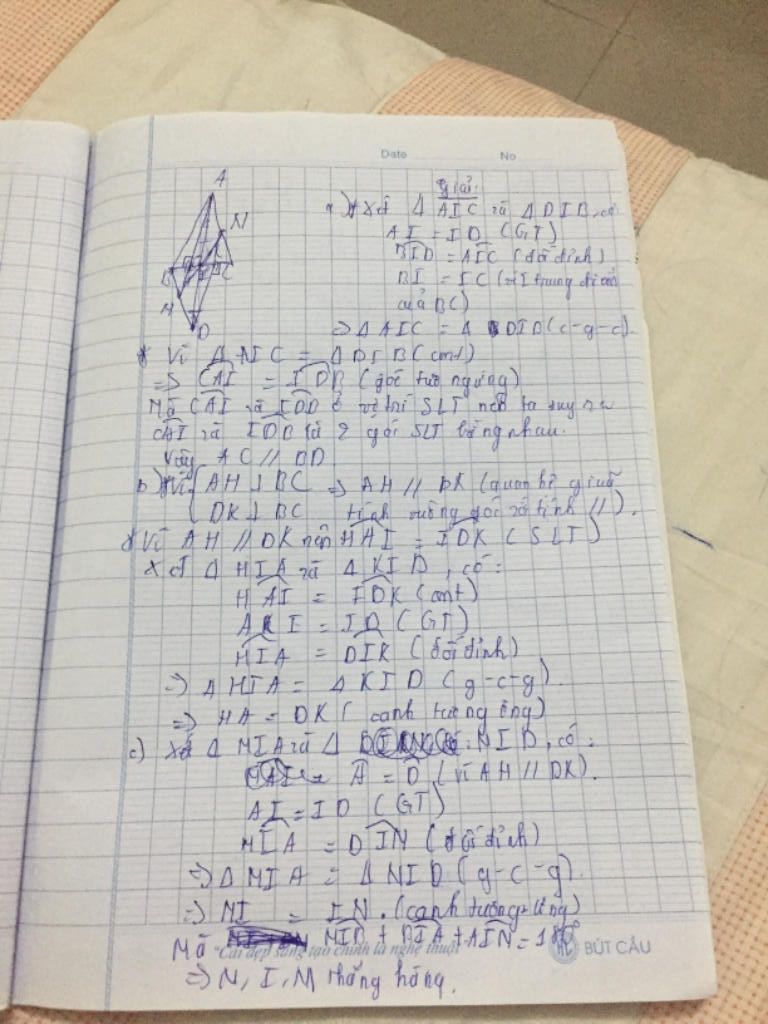 Date No
Giải:
A
N
B
C
M
D
a) * Xét Δ AIC và Δ DIB, có
AI = ID (GT)
BID = AIC (đối đỉnh)
BI = IC (vì I trung điểm
của BC)
=> Δ AIC = Δ DIB (c-g-c).
* Vì Δ AIC = Δ DIB (cmt)
=> CAI = IDB (góc tương ứng)
Mà CAI và IDB ở vị trí SLT nên ta suy ra
CAI và IDB là 2 góc SLT bằng nhau.
Vậy AC // BD
b) * Vì { AH ⊥ BC => AH // DK (quan hệ giữa
DK ⊥ BC tính vuông góc và tính //).
* Vì AH // DK nên HAI = IDK (SLT)
Xét Δ HIA và Δ KID, có:
HAI = IDK (cmt)
AI = ID (GT)
HIA = DIK (đối đỉnh)
=> Δ HIA = Δ KID (g-c-g).
=> HA = DK (cạnh tương ứng)
c) Xét Δ MIA và Δ NID, có:
A = D (vì AH // DK).
AI = ID (GT)
MIA = DIN (đối đỉnh)
=> Δ MIA = Δ NID (g-c-g).
=> MI = IN. (cạnh tương ứng)
Mà MIB + BIA + AIN = 180°
"Cái đẹp sáng tạo chính là nghệ thuật" BÚT CẦU
=> N, I, M thẳng hàng.